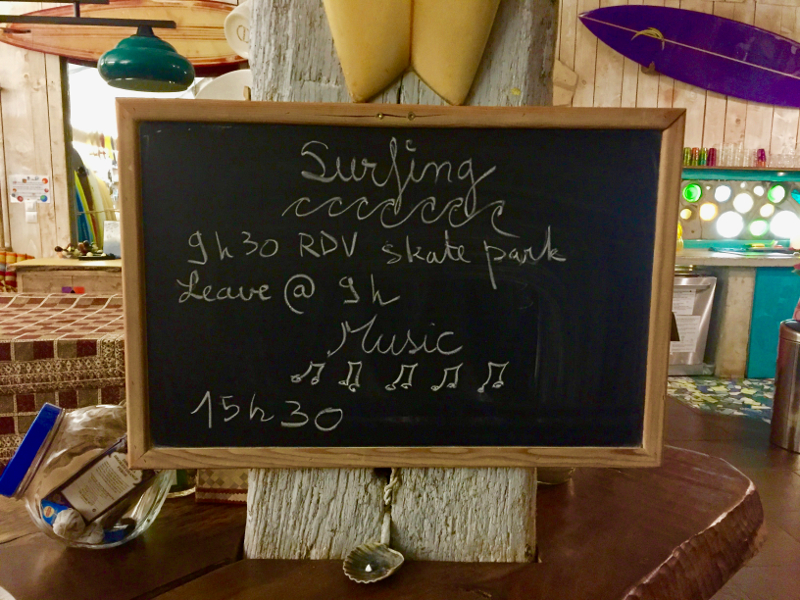 Surfing
9h30 RDV skate park
Leave @ 9h
Music
15h30